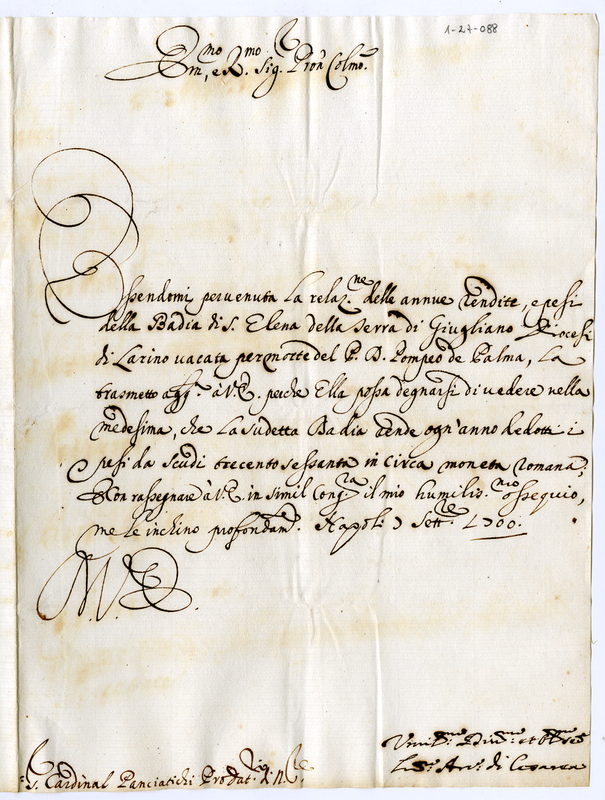 1-27-088
Em.mo, e R.mo Sig.r Pron Colmo
Essendomi pervenuta la relaz.ne delle annue rendite, e pesi
della Badia di S. Elena della Serra di Giugliano Diocesi
di Larino vacata per morte del P. D. Pompeo de Palma, la
trasmetto agg.a à V.E. perche Ella possa degnarsi di vedere nella
medesima, che la sudetta Badia rende ogn'anno dedotti i
pesi da scudi trecento sessanta in circa moneta romana;
E con rassegnare à V.E. in simil cong.ra il mio humilis.mo ossequio,
me le inchino profondam.te Napoli 3 Sett.re 1700.
D. V. E.
S. Cardinal Panciatichi Prodat.rio di N. S.re
Umil.mo Div.mo et Obl.mo
Arc.o di Cesarea